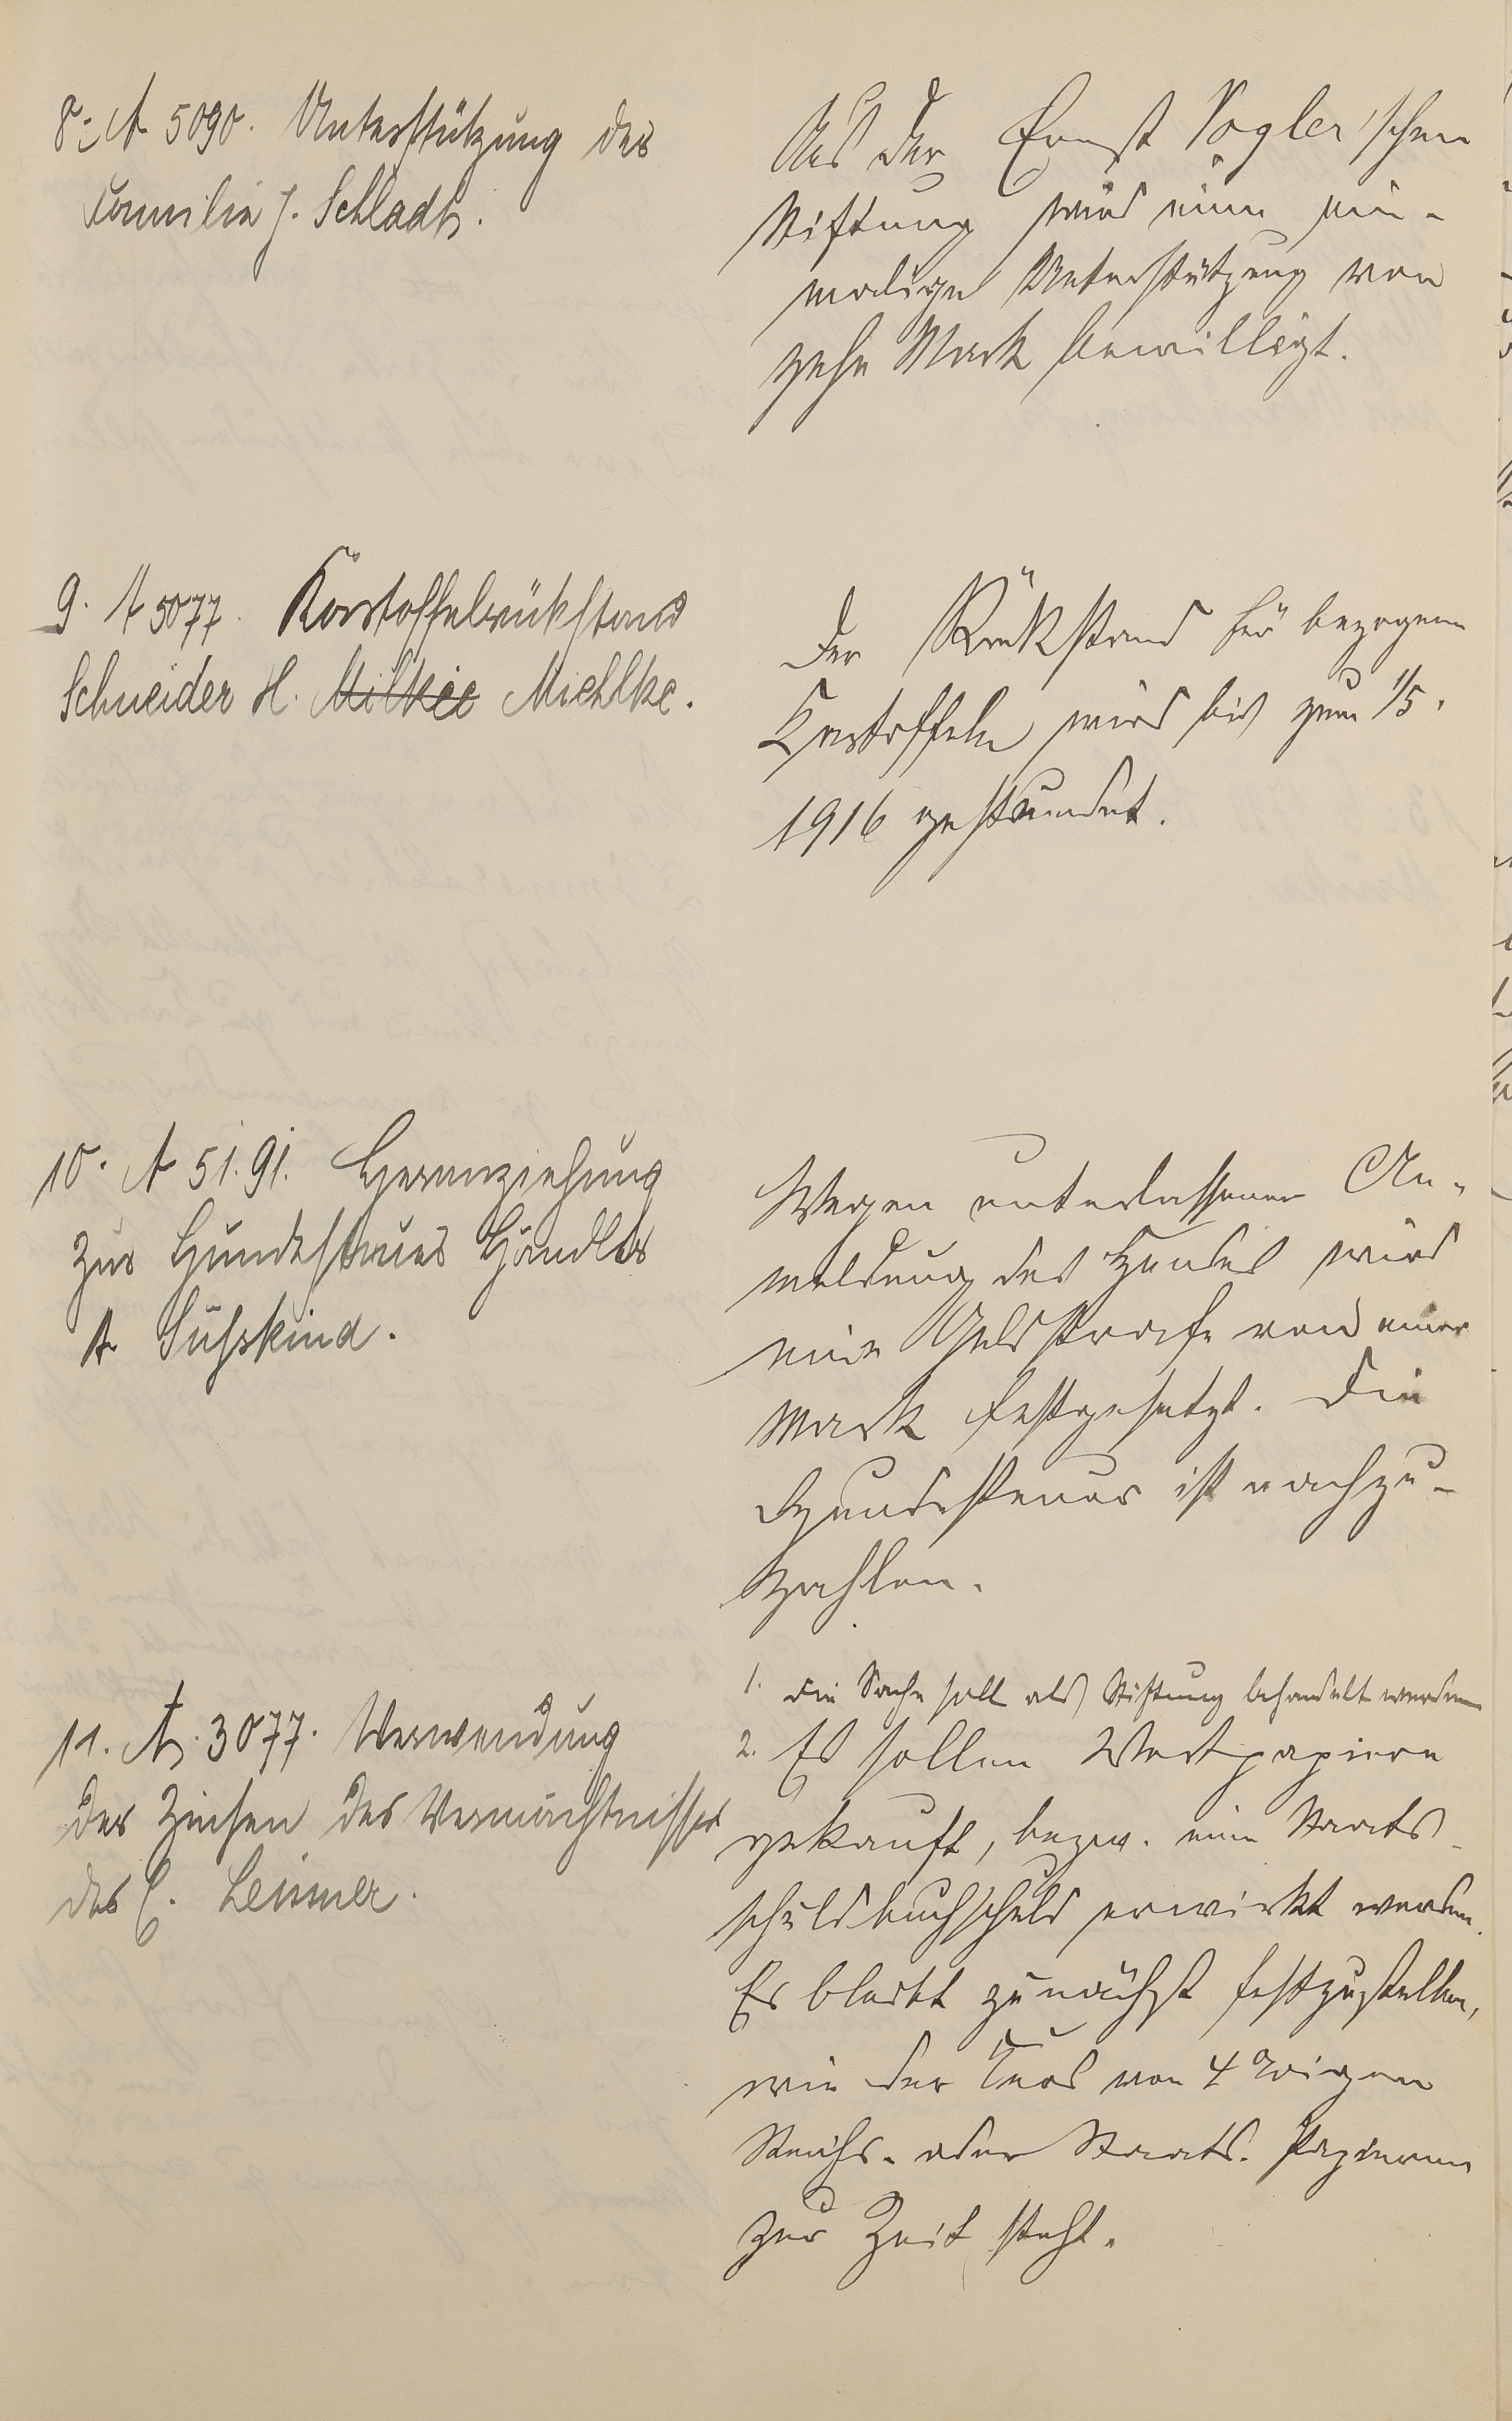 8. A 5090. Unterstützung der
Familie J. Schladt.
Aus der Ernst Vogler'schen
Stiftung wird eine ein-
malige Unterstützung von
zehn Mark bewilligt.
9. A 5077. Kartoffelrückstand
Schneider H. Milkie Miehlke.
Der Rückstand für bezogene
Kartoffeln wird bis zum 1/5.
1916 gestundet.
10. A 5191. Heranziehung
zur Hundesteuer Händler
A Süßkind.
Wegen unterlassener An-
meldung des Hundes wird
eine Geldstrafe von einer
Mark festgesetzt. Die
Hundesteuer ist nachzu-
zahlen.
11. A. 3077. Verwendung
der Zinsen des Vermächtnisses
des C. Leisner.
1. Die Sache soll als Stiftung behandelt werden
2. Es sollen Wertpapiere
gekauft, bezw. eine Staats-
schuldbuchschuld erwirkt werden.
Es bleibt zunächst festzustellen,
wie der Kurs von 4%igen
Reichs- oder Staats-Papieren
zur Zeit steht.